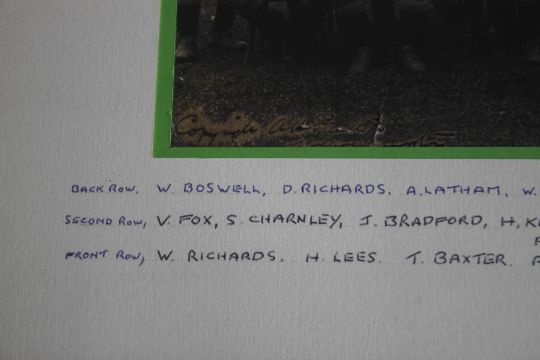 Copyright
BACK ROW. W. BOSWELL, D. RICHARDS. A. LATHAM, W.
SECOND ROW, V. FOX, S. CHARNLEY, J. BRADFORD, H. K
FRONT ROW, W. RICHARDS. H. LEES. T. BAXTER.